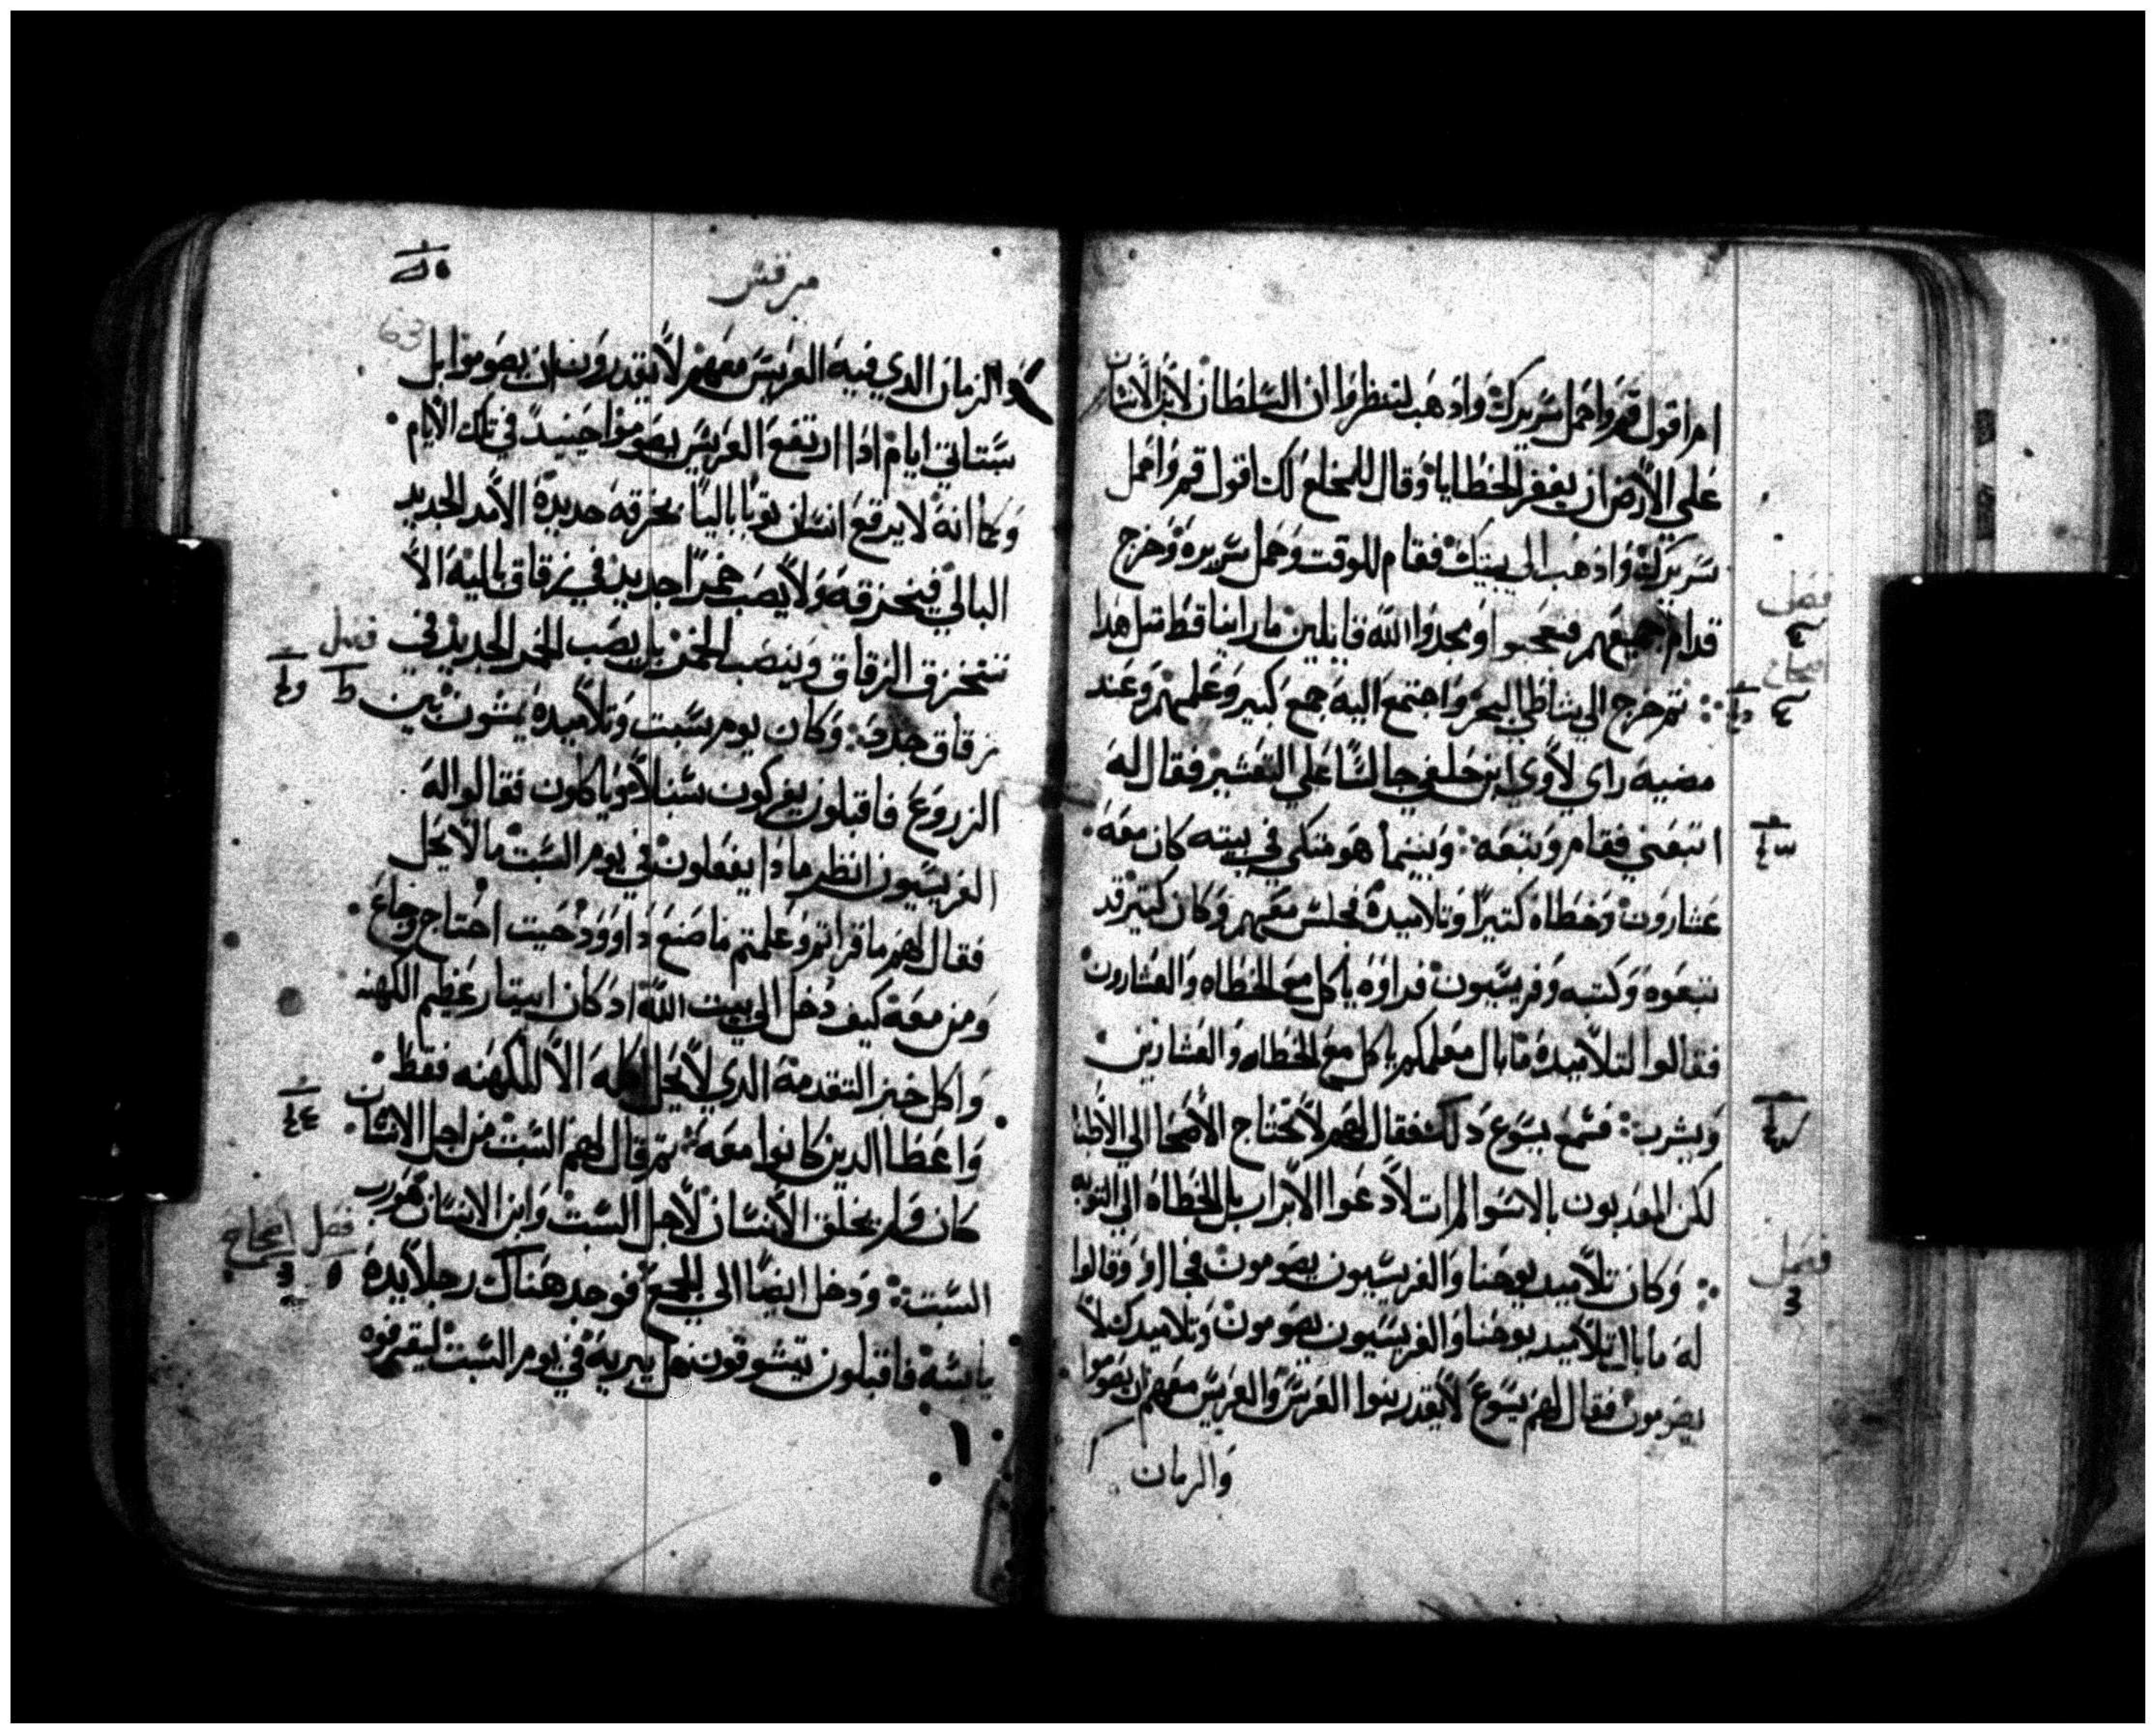 ام اقول قم واحمل سريرك واذهب لتنظروا ان السلطان لابن الانسان
علي الارض ان يغفر الخطايا وقال للمخلع لك اقول قم واحمل
سريرك واذهب الي بيتك فقام للوقت وحمل سريره وخرج
قدام جميعهم فتعجبوا ومجدوا الله قايلين ما راينا قط متل هدا
فصل
ثم خرج الي شاطي البحر واجتمع اليه جمع كبير وعلمهم وعند
مضيه راي لاوي ابن حلفي جالسا علي التعشير فقال له
اتبعني فقام وتبعه وبينما هو متكي في بيته كان معه
عشارون وخطاه كتيرا وتلاميده فجلس معهم وكان كتير قد
تبعوه وكتبه وفريسيون فراوه ياكل مع الخطاه والعشارون
فقالوا لتلاميده ما بال معلمكم ياكل مع الخطاه والعشارين
ويشرب فسمع يسوع دلك فقال لهم لا تحتاج الاصحا الي الاطبا
لكن المعدبون بالاسوا لم ات لادعوا الابرار بل الخطاه الي التوبه
فصل
وكان تلاميد يوحنا والفريسيون يصومون فجاوا وقالوا
له ما بال تلاميد يوحنا والفريسيون يصومون وتلاميدك لا
يصومون فقال لهم يسوع لا يقدر بنوا العرس والعريس معهم ان يصوموا
والزمان
مرقس
63
والزمان الدي فيه العريس معهم لا يقدرون ان يصوموا بل
ستاتي ايام ادا ارتفع العريس يصوموا حينيد في تلك الايام
وكما انه لا يرقع انسان توبا باليا بخرقه جديدة الا مد الجديد
البالي فيخرقه ولا يصب خمرا جديد في زقاق باليه الا
فتخرق الزقاق وينصب الخمر بل يصب الخمر الجديد في
فصل
زقاق جدد وكان يوم سبت وتلاميده يمشون بين
الزروع فاقبلون يفركون سنبلا وياكلون فقالوا له
الفريسيون انظر مادا يفعلون في يوم السبت ما لا يحل
فقال لهم ما قراتم وعلمتم ما صنع داوود حيت احتاج وجاع
ومن معه كيف دخل الي بيت الله اد كان ابيتار عظيم الكهنه
واكل خبز التقدمة الدي لا يحل اكله الا للكهنه فقط
واعطا الدين كانوا معه ثم قال لهم السبت من اجل الانسان
كان ولم يخلق الانسان لاجل السبت وابن الانسان هو رب
فصل اصحاح
السبت ودخل ايضا الي المجمع فوجد هناك رجلا يده
يابسة فاقبلون يتشوقون هل يبريه في يوم السبت ليقرفوه